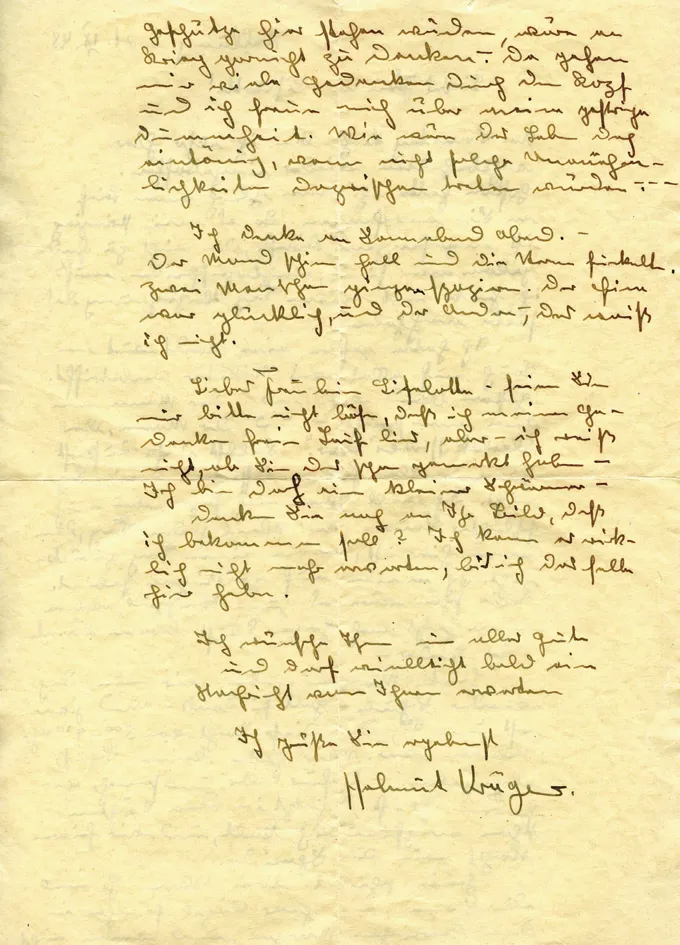 Geschütze hier stehen würden, wäre an
Krieg garnicht zu denken. – Da gehen
mir viele Gedanken durch den Kopf
und ich freue mich über meine gestrige
Dummheit. Wie wäre das Leben doch
eintönig, wenn nicht solche Unannehm-
lichkeiten dazwischen treten würden. – –
Ich denke an Sonnabend abend. –
Der Mond schien hell und die Sterne funkelten.
Zwei Menschen gingen spazieren. Der Eine
war glücklich, und der Andere –, das weiß
ich nicht.
Liebes Fräulein Liselotte – seien Sie
mir bitte nicht böse, daß ich meinen Ge-
danken freien Lauf ließ, aber – ich weiß
nicht, ob Sie das schon gemerkt haben –
Ich bin doch ein kleiner Schwärmer –
Denken Sie noch an Ihr Bild, daß
ich bekommen soll? Ich kann es wirk-
lich nicht mehr erwarten, bis ich dasselbe
hier habe.
Ich wünsche Ihnen nun alles Gute
und darf vielleicht bald eine
Nachricht von Ihnen erwarten
Ich grüße Sie ergebenst
Helmut Krüger.